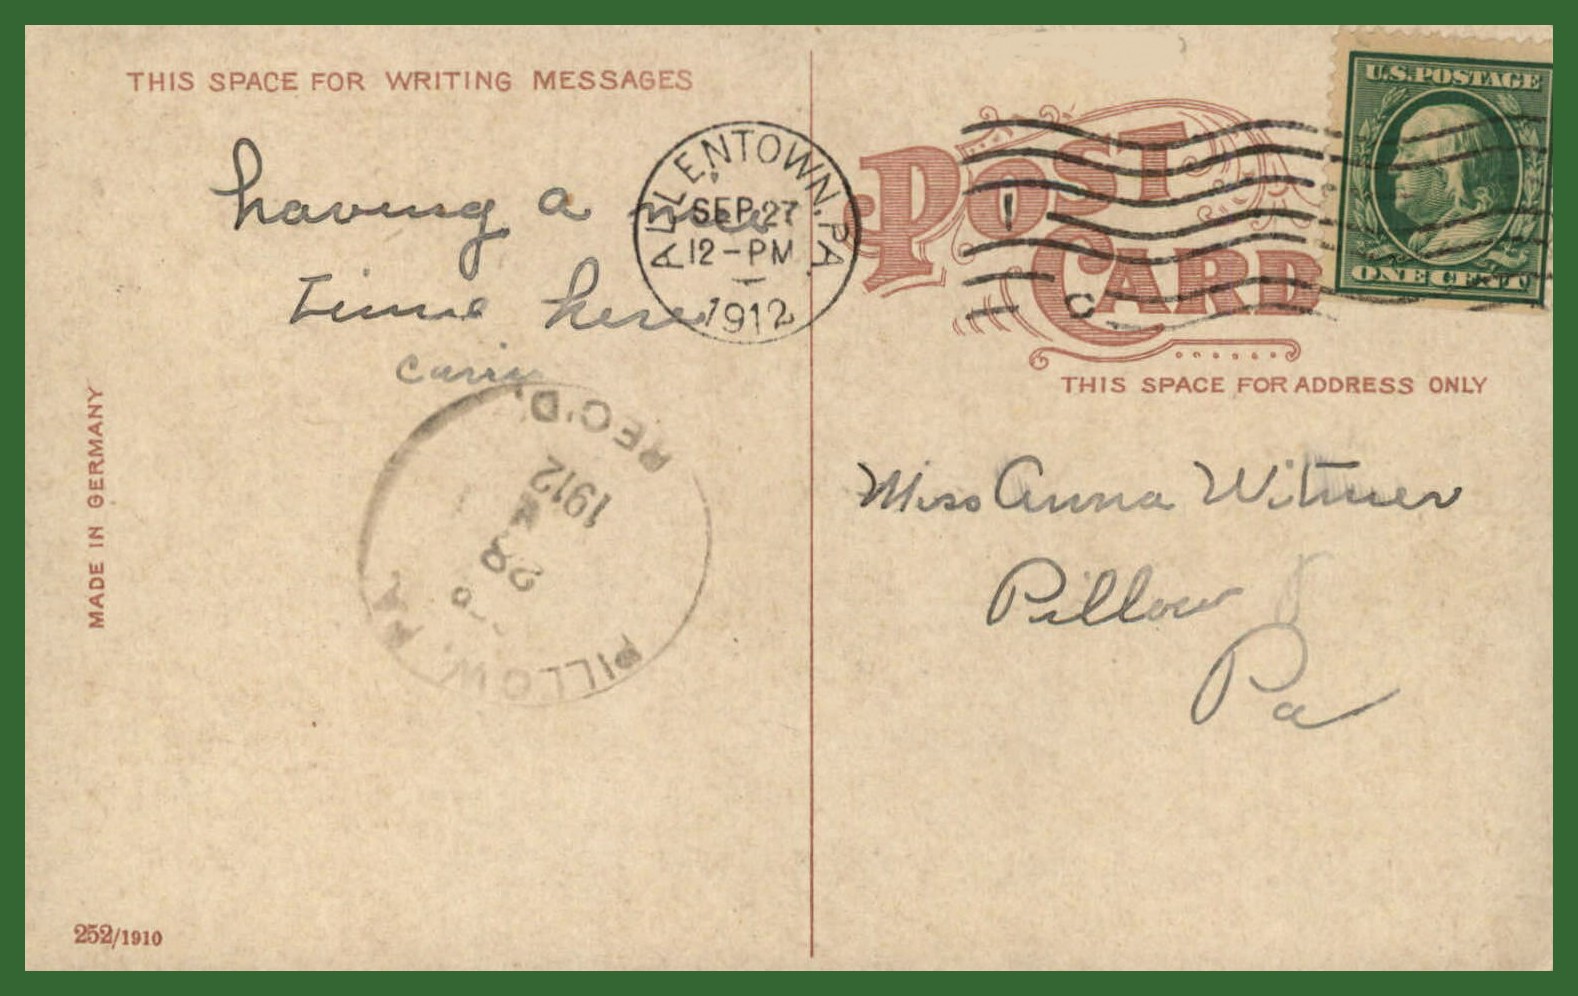 THIS SPACE FOR WRITING MESSAGES
having a nice
time here
Carrie
ALLENTOWN, PA.
SEP 27
12-PM
1912
POST CARD
U.S. POSTAGE
ONE CENT
THIS SPACE FOR ADDRESS ONLY
Miss Anna Witmer
Pillow
Pa
PILLOW,
28
1912
REC'D.
MADE IN GERMANY
252/1910